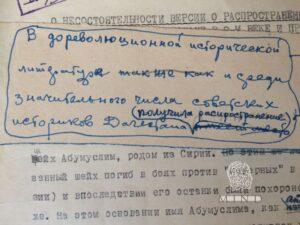 О НЕСОСТОЯТЕЛЬНОСТИ ВЕРСИИ О РАСПРОСТРАНЕНИ
ВЕКЕ И
В дореволюционной исторической
литературе так же как и среди
значительного числа советских
получила распространение
историков Дагестана
шейх Абумуслим, родом из Сирии. Но этим
ванный шейх погиб в боях против "
рных" в
зии) и впоследствии его останки были похорон
хе. На этом основании имя Абумуслима, как